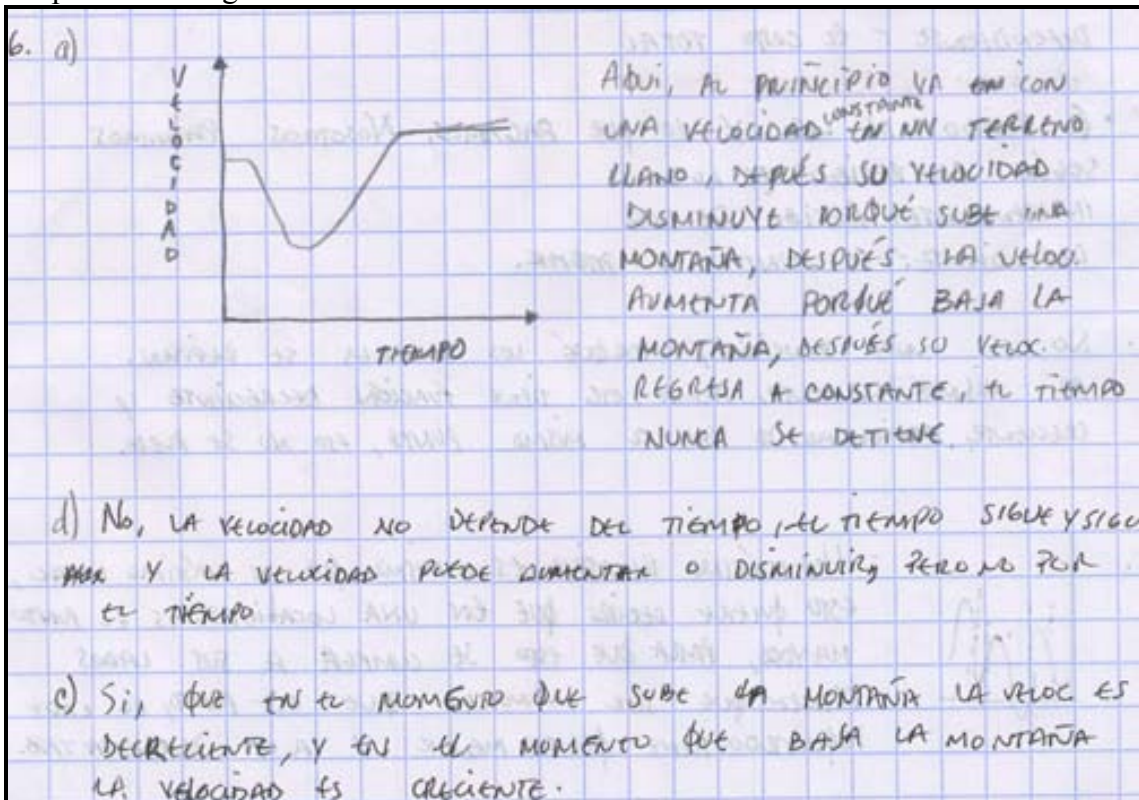 6. a)
VELOCIDAD
TIEMPO
AQUI, AL PRINCIPIO VA CON
UNA VELOCIDAD CONSTANTE EN UN TERRENO
LLANO, DEPUÉS SU VELOCIDAD
DISMINUYE PORQUÉ SUBE UNA
MONTAÑA, DESPUÉS LA VELOC.
AUMENTA PORQUÉ BAJA LA
MONTAÑA, DESPUÉS SU VELOC.
REGRESA A CONSTANTE, EL TIEMPO
NUNCA SE DETIENE.
d) No, LA VELOCIDAD NO DEPENDE DEL TIEMPO, EL TIEMPO SIGUE Y SIGUE
Y LA VELOCIDAD PUEDE AUMENTAR O DISMINUIR, PERO NO POR
EL TIEMPO
c) Si, QUE EN EL MOMENTO QUE SUBE LA MONTAÑA LA VELOC ES
DECRECIENTE, Y EN EL MOMENTO QUE BAJA LA MONTAÑA
LA VELOCIDAD ES CRECIENTE.